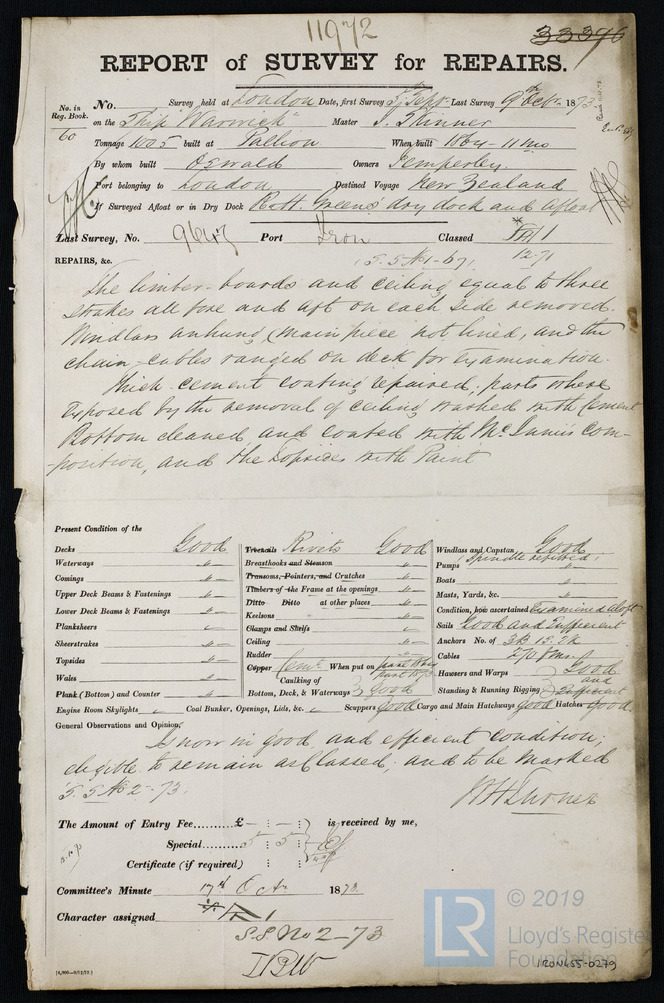 11972
33396
REPORT of SURVEY for REPAIRS.
No. in Reg. Book.
60
No. Survey held at London Date, first Survey 5th Sept. Last Survey 9th Octr. 1873
on the Ship "Warwick" Master J. Skinner
Tonnage 1005 built at Pallion When built 1864 - 11 mo
By whom built Oswald Owners Temperley
Port belonging to London Destined Voyage New Zealand
If Surveyed Afloat or in Dry Dock R & H. Greens' dry dock and afloat
Last Survey, No. Port Iron Classed 1
12.71
REPAIRS, &c. (S.S. No 1-67)
The limber-boards and ceiling equal to three
strakes all fore and aft on each side removed.
Windlass unhung (main piece not lined, and the
chain-cables ranged on deck for examination.
Thick cement coating repaired; parts where
exposed by the removal of ceiling washed with Cement
Bottom cleaned, and coated with McInnis Com-
-position, and the Topsides with Paint
Present Condition of the
Decks Good
Waterways "
Comings "
Upper Deck Beams & Fastenings "
Lower Deck Beams & Fastenings "
Planksheers
Sheerstrakes "
Topsides "
Wales
Plank (Bottom) and Counter "
Treenails Rivets Good
Breasthooks and Stemson "
Transoms, Pointers, and Crutches "
Timbers of the Frame at the openings "
Ditto Ditto at other places "
Keelsons "
Clamps and Shelfs
Ceiling "
Rudder "
Copper Cemt. When put on
Caulking of
Bottom, Deck, & Waterways Good
Windlass and Capstan Good
Spindle refitted
Pumps "
Boats "
Masts, Yards, &c. "
Condition, how ascertained Examined aloft
Sails Good and Sufficient
Anchors No. of 3B 1S. 2K
Cables 270 fms
Hawsers and Warps Good
and
Standing & Running Rigging Sufficient
Engine Room Skylights Coal Bunker, Openings, Lids, &c. Scuppers Good Cargo and Main Hatchways Good Hatches Good
General Observations and Opinion,
Is now in good and efficient condition;
eligible to remain as Classed; and to be marked
S.S. No 2-73.
The Amount of Entry Fee......... £ is received by me,
Special......... 5 : 5
Certificate (if required)
Committee's Minute 17th Octr. 1873
Character assigned
S.S. No 2-73
© 2019
LR
Lloyd's Register
Foundation
IRON455-0279